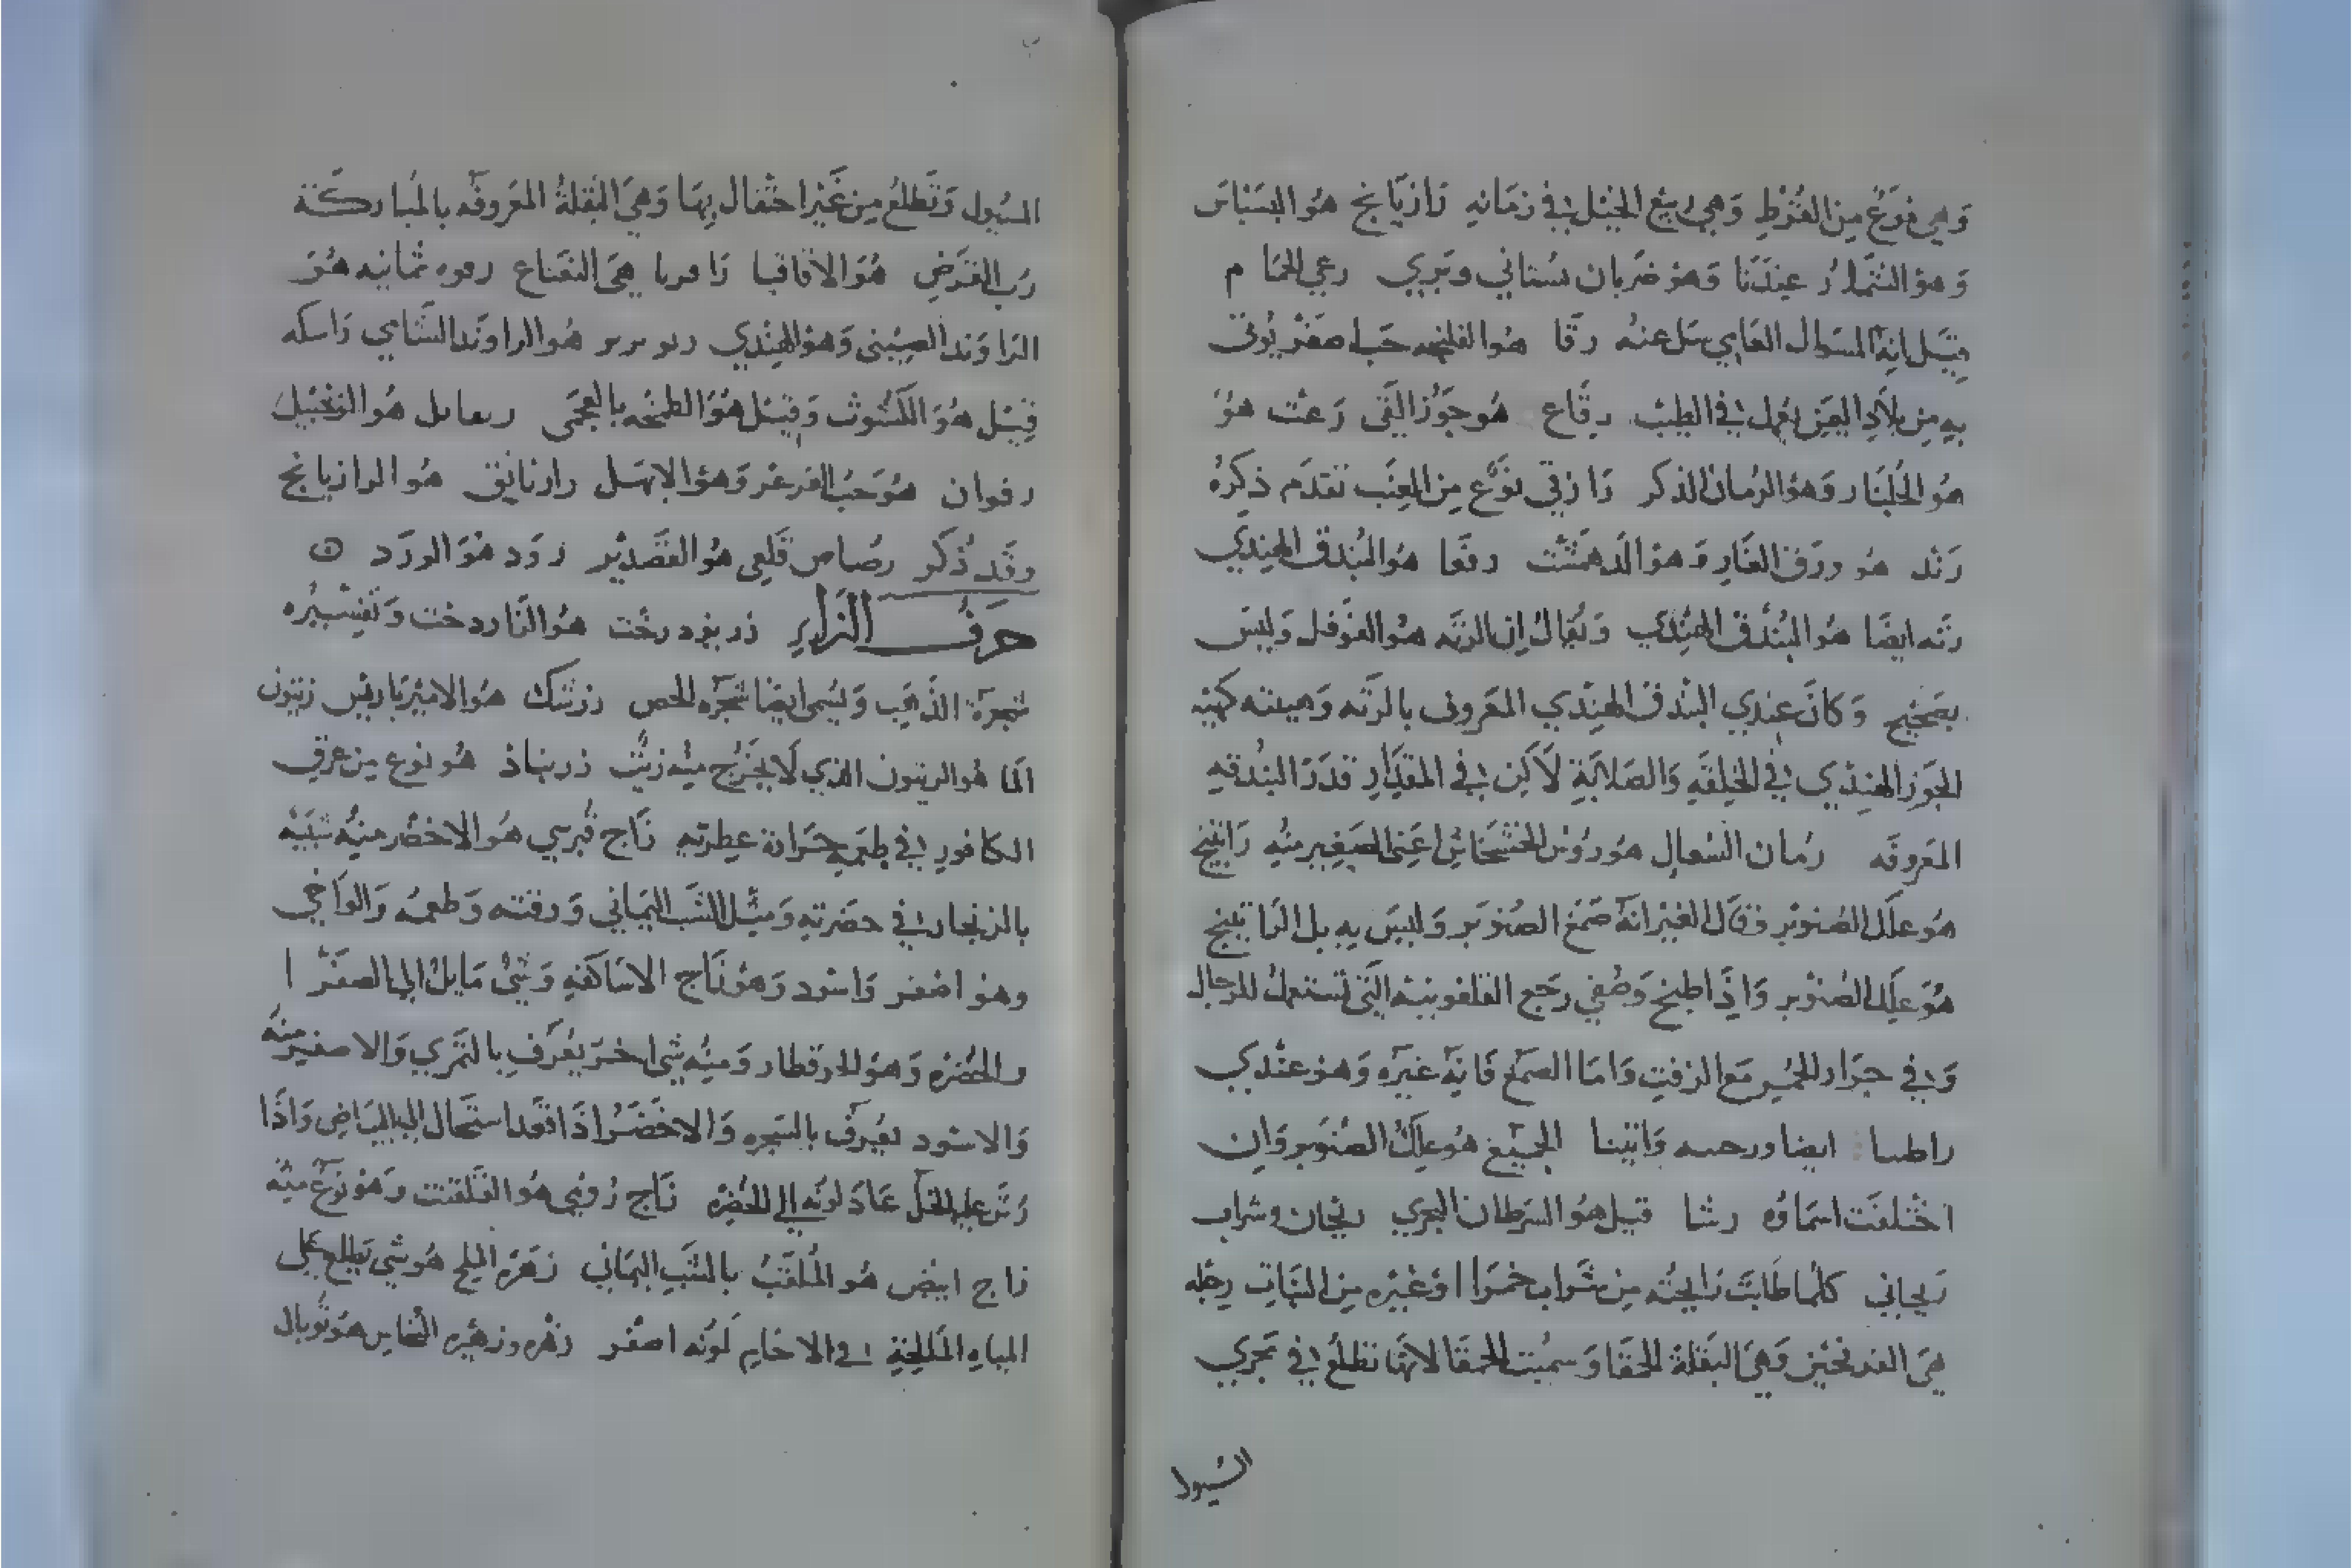 وَهي نوَعٌ مِن القُرْطِ وَهي ربيْع الخيْل في زمَانِهِ رَازيَانج هوُ البسَبَاسَ
وَهوُ الشَّمارُ عِندَنَا وَهوَ ضربان بُستاني وبَرِي رعي الحمَام
قِيَل انهُ السَوال العَامي سَل عنهُ رقَا هوُ الفليجه حَب اصفَرْ يُوتَى
بهِ مِن بلَادِ اليَمن يعمل في الطِيبْ رقَاع هُو جَوْز القَى رَعث هوُ
هوُ الجُلنَار وَهوُ الرمَان الذكر رَازقي نوَع مِن العِنَب تقدَم ذِكرهُ
رَند هو ورَق الغَارِ وَهوَ الدَهمَشْت رتَعا هوُ البُندق الهِندِي
رته ايضًا هوُ البُندَق الهِندَي وَيُقالُ اِن الرتَه هوُ الفَوفل وَليَس
بصَحِيْح وَكانَ عِندِي البُندق الهِندي المعَروف بالرتَه وَهيئته كهيْه
الجَوز الهندَي في الخِلقَهِ وَالصَلابَةِ لَاكِن في المقدَارِ قدَرَ البُندقهِ
المعَروفَه رُمان السُعال هوُ رؤس الخشْخَاش اعَني الصَغِير منُهِ رَاتينج
هوُ علَك الصُنوَبر وَقال الغَيْر انهُ صَمَغ الصُنوَبَر وَليَسَ بهِ بل الرَاتينج
هوُ عِلَك الصُنوَبر وَاذَا طبخ وَصُفي رجَع القلفونيَه التَي تُستعمل للرجال
وَفي جرَار الخمْر مَع الزفت وَامَا الصمَغ فَانهَ غيَره وَهوَ عندي
راطينا ايضا ورحينه وَاتينا الجمَيْع هوُ عِلكُ الصُنوَبر وَان
اختْلفَت اسمَاؤه رشا قيل هوُ السَرطان البحري ريحان وشراب
رَيحاني كلُما طَابتَ رَايحتَه مِن شَراب خمَرا اوَغيْره مِن النبَات رجْله
هيَ الفرفحَيْن وَهيَ البَقلة الحمَقا وَسميُت الحمقا لانهَا تطلعُ في مجَري
السُيول
السُيول وَتَطلعُ مِن غَيْر احتْفال بِهَا وَهيَ البَقلةُ المعَروفَه بالمُباركَة
رُب القَرضِ هُوَ الاقاقيا رَامريا هيَ النعَناع رموه ثمانيه هوُ
الرَاوَند الصِيْني وَهوُ الهِنْدِي ريوبربر هوُ الراوَند الشَامي رَاسكه
قِيَل هوُ الكَشُوث وَقيَل هوُ الطمحَه بالعجمَى رىعابل هوُ الزنجَبيل
رفوان هوُ حَبُ العَرعر وَهوُ الابهَل رازنايق هوُ الرازيانج
وقَد ذُكر رصُاص قَلعى هوُ القصَدير رَوَد هوُ الورَد
حرفُ الزاي زر بزد رخت هوُ النَاردخت وَتفسيْره
شجَرة الذَهبَ وَيسُمى ايضا شجَره الحص زرشك هوُ الامبَربَاريْس زيتوُن
المَا هو الزيتون الذي لَا يخَرُج مِنْه زيَت زرنباذ هوُ نوَع مِن عرقِ
الكافور في طعمِه حرَارة عِطرته زَاج قُبرسي هوُ الاخضَر منِهُ شبَيْه
بالزنجار في خضرتهِ وَمثَل الشَب اليمَاني وَرقته وَطعمهُ وَالواخي
وهوُ اصفر وَاسود وَهوُ زَاج الاسَاكفهِ وَشَئ مَايل الي الصفَر ا
والخضَره وَهوُ القَلقطار وَمنِهُ شي اخرَ يُعرَف بالتمري وَالاصغير منهُ
وَالاسود يعُرفَ بالشجره وَالاخَضرَ اذَا قعدَ استحَال الي البيَاض وَاذَا
رُش عليه الخلَ عَادَ لونُه الي الخضره زَاج رُومي هوُ القَلقنت وَهوُ نوعَ منِهُ
زاج ابيْض هوُ المُلقبَُ بالشَب اليمَاني زهَرة الملح هوُ شي يَطلع عَلى
المياهِ المَالحِة في الاخام لَونُه اصفَر زهْره وزَهيْره النُحاس هوُ تُوبال